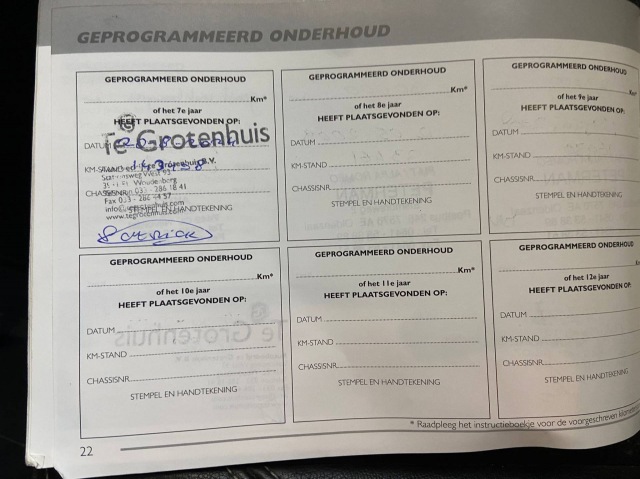 GEPROGRAMMEERD ONDERHOUD
GEPROGRAMMEERD ONDERHOUD
Km*
of het 7e jaar
HEEFT PLAATSGEVONDEN OP:
Te Grotenhuis
DATUM
KM-STAND
CHASSISNR.
Fax 033 - 286 44 57
www.tegrotenhuis.com
STEMPEL EN HANDTEKENING
GEPROGRAMMEERD ONDERHOUD
Km*
of het 8e jaar
HEEFT PLAATSGEVONDEN OP:
DATUM
KM-STAND
CHASSISNR.
STEMPEL EN HANDTEKENING
GEPROGRAMMEERD ONDERHOUD
of het 9e jaar
HEEFT PLAATSGEVONDEN OP:
DATUM
KM-STAND
CHASSISNR.
STEMPEL EN HANDTEKENING
GEPROGRAMMEERD ONDERHOUD
Km*
of het 10e jaar
HEEFT PLAATSGEVONDEN OP:
DATUM
KM-STAND
CHASSISNR.
STEMPEL EN HANDTEKENING
GEPROGRAMMEERD ONDERHOUD
Km*
of het 11e jaar
HEEFT PLAATSGEVONDEN OP:
DATUM
KM-STAND
CHASSISNR.
STEMPEL EN HANDTEKENING
GEPROGRAMMEERD ONDERHOUD
of het 12e jaar
HEEFT PLAATSGEVONDEN OP:
DATUM
KM-STAND
CHASSISNR.
STEMPEL EN HANDTEKENING
* Raadpleeg het instructieboekje voor de voorgeschreven
22